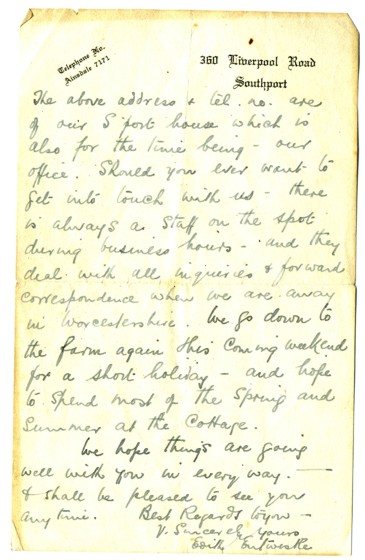 Telephone No.
Ainsdale 7171
360 Liverpool Road
Southport
The above address & tel. no. are
of our S'port house which is
also for the time being - our
office. Should you ever want to
get into touch with us - there
is always a staff on the spot
during business hours - and they
deal with all inquiries & forward
correspondence when we are away
in Worcestershire. We go down to
the farm again this coming weekend
for a short holiday - and hope
to spend most of the Spring and
Summer at the Cottage.
We hope things are going
well with you in every way. —
& shall be pleased to see you
any time. Best Regards to you -
V. Sincerely Yours
Edith Entwistle